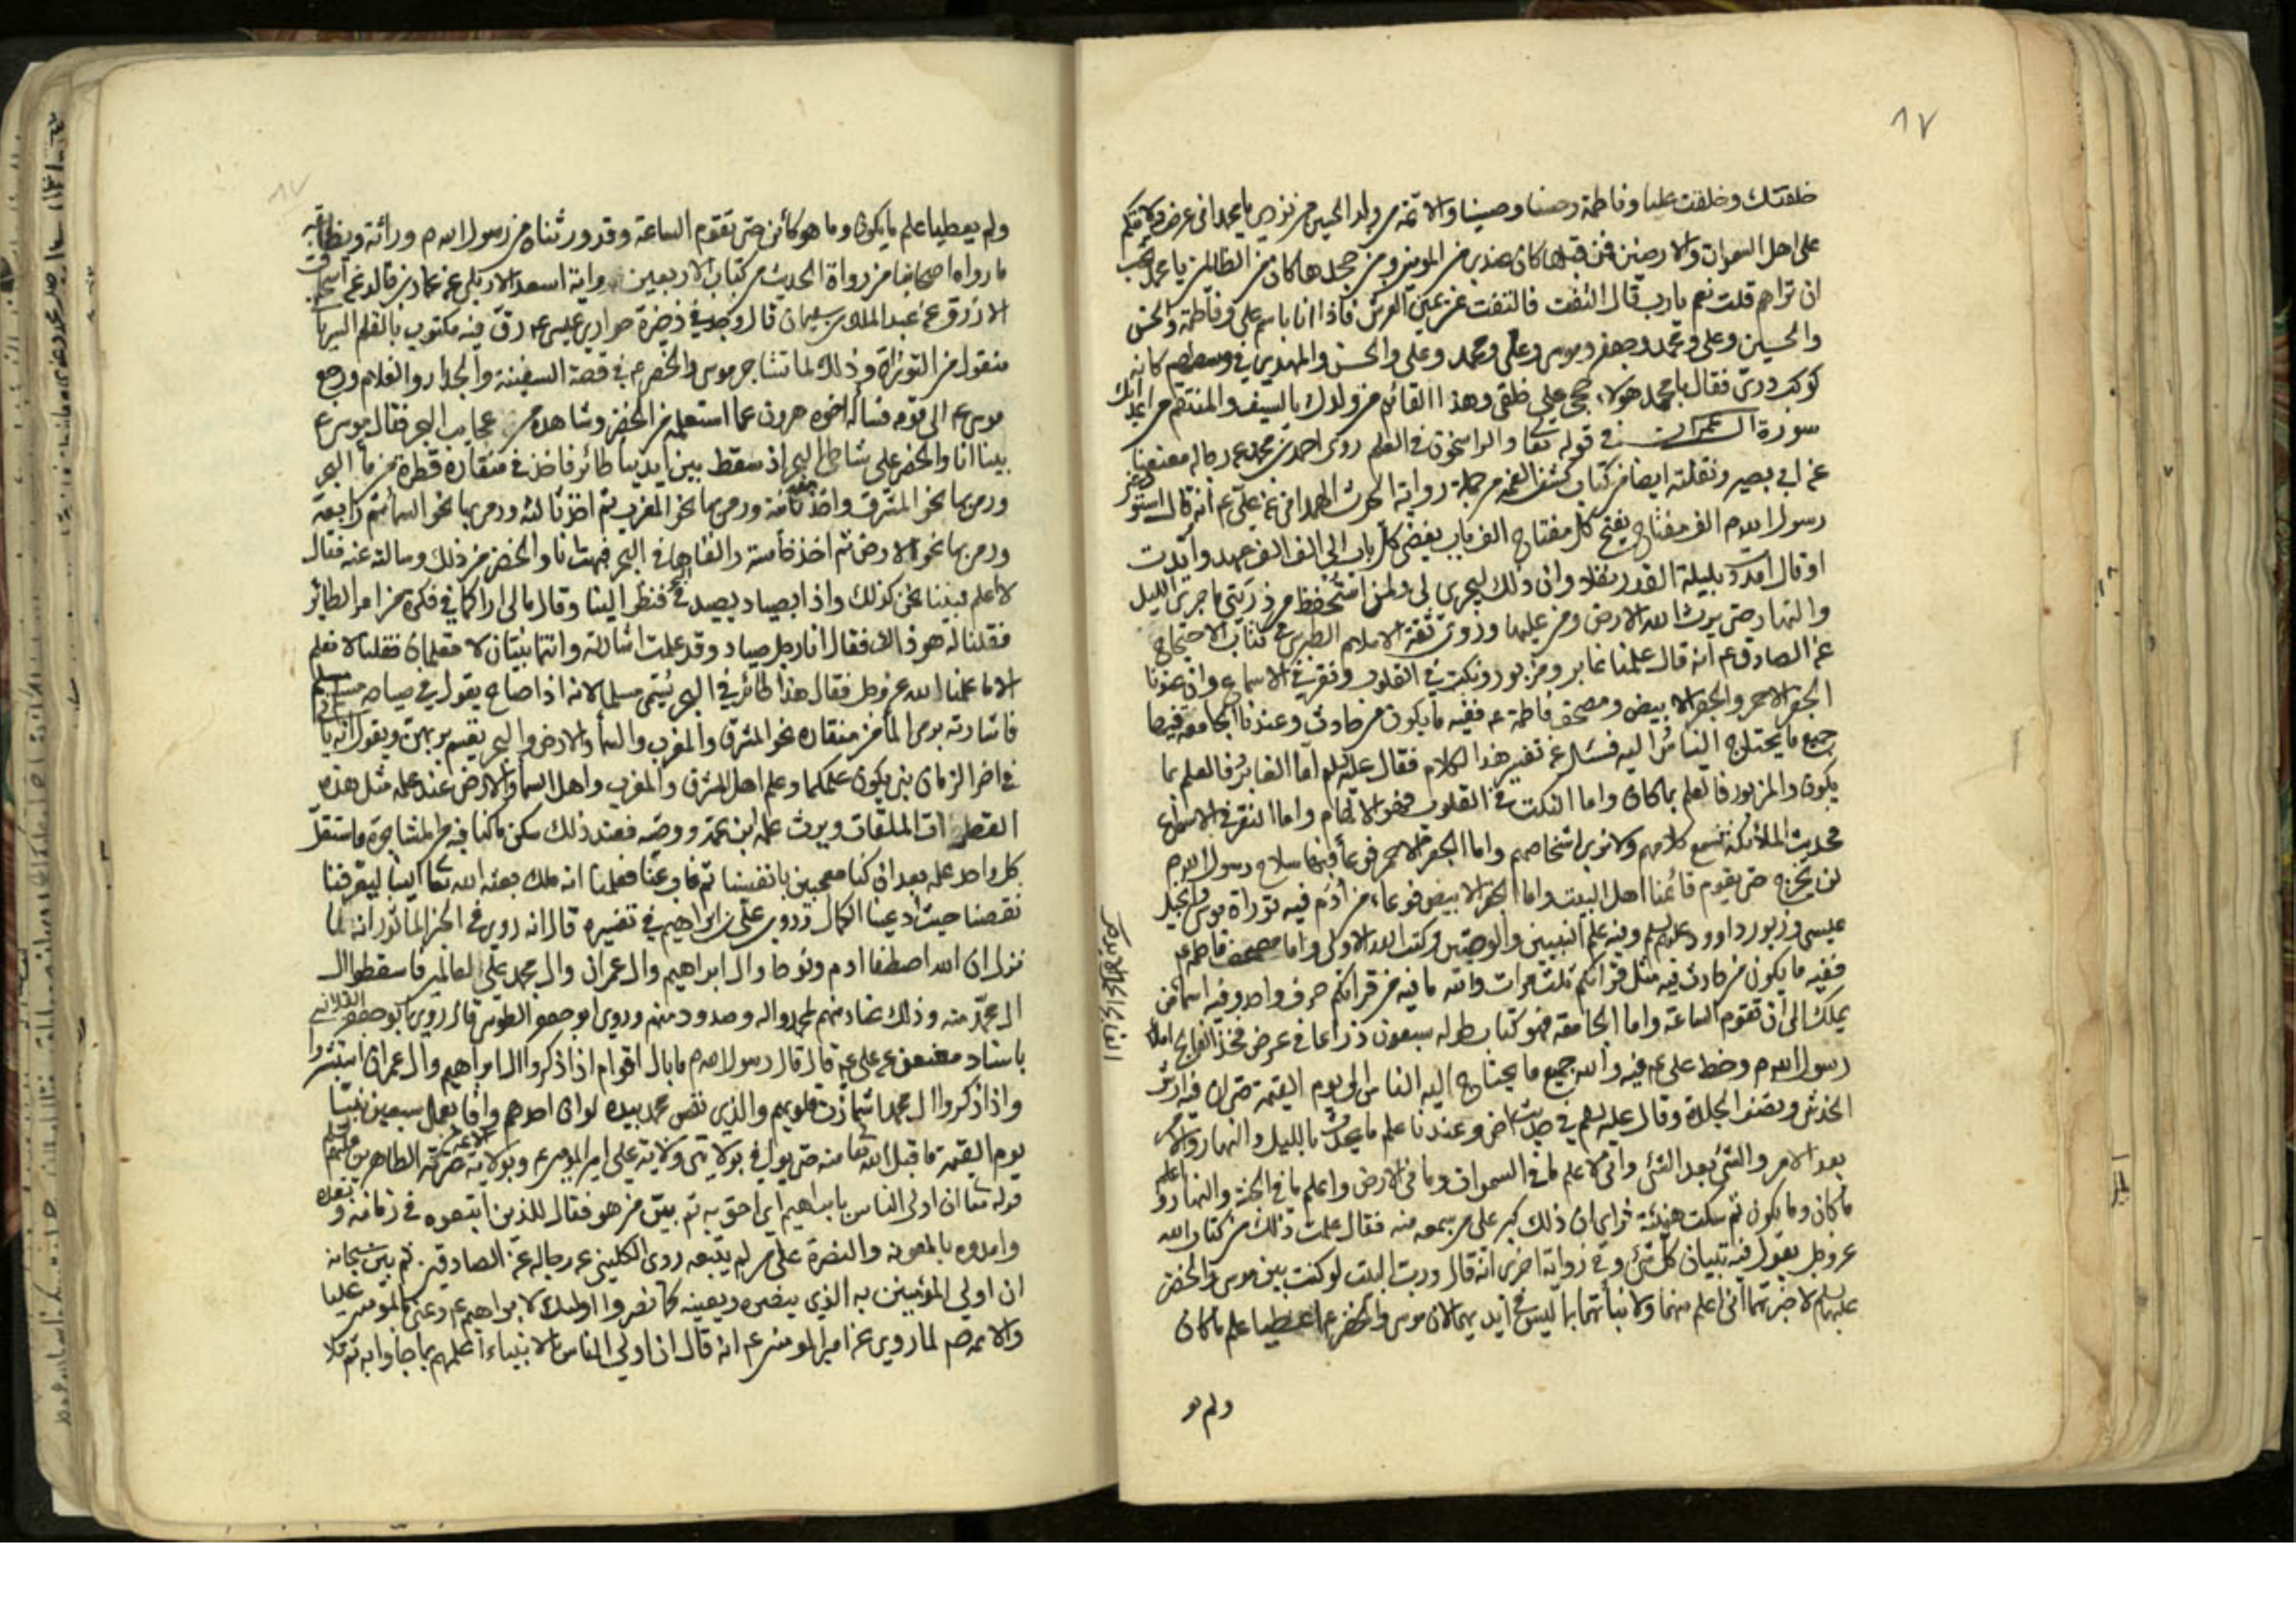 ٨٧
خلقتك وخلقت عليا وفاطمة وحسنا وحسينا والائمة من ولد الحسين من نوري يا محمد اني عرضت ولايتكم
على اهل السموات والارضين فمن قبلها كان عندي من المومنين ومن جحدها كان من الظالمين يا محمد تحب
ان تراهم قلت نعم يا رب قال التفت فالتفت عن يمين العرش فاذا انا باسم علي وفاطمة والحسن
والحسين وعلي ومحمد وجعفر وموسى وعلي ومحمد وعلي والحسن والمهدي في وسطهم كانه
كوكب دري فقال يا محمد هولاء حججي على خلقي وهذا القائم من ولدك بالسيف والمنتقم من اعدائك
سورة ال عمران في قوله تعا والراسخون في العلم روى احمد بن محمد عن رجاله معنعنا
عن ابي بصير ونقلته ايضا من كتاب كشف الغمة من جملة رواية الحرث الهمداني عن علي ع انه قال استودعني
رسول الله ص الف مفتاح يفتح كل مفتاح الف باب يفضي كل باب الى الف الف عهد وايدت
او قال امددت بليلة القدر نفلا وان ذلك ليجري لي ولمن استحفظ من ذريتي ما جرى الليل
والنهار حتى يرث الله الارض ومن عليها وروى ثقة الاسلام الطبرسي في كتاب الاحتجاج
عن الصادق ع انه قال علمنا غابر ومزبور ونكت في القلوب ونقر في الاسماع وان عندنا
الجفر الاحمر والجفر الابيض ومصحف فاطمة ع ففيه ما يكون من حادث وعندنا الجامعة فيها
جميع ما يحتاج الناس اليه فسئل عن تفسير هذا الكلام فقال عليه السلم اما الغابر فالعلم بما
يكون والمزبور فالعلم بما كان واما النكت في القلوب فهو الالهام واما النقر في الاسماع
فحديث الملائكة نسمع كلامهم ولا نرى اشخاصهم واما الجفر الاحمر فوعاء فيها سلاح رسول الله ص
لن يخرج حتى يقوم قائمنا اهل البيت واما الجفر الابيض فوعاء من ادم فيه توراة موسى وانجيل
عيسى وزبور داود عليهم السلم وفيه علم النبيين والوصيين وكتب الله الاولى واما مصحف فاطمه ع
ففيه ما يكون من حادث فيه مثل قرانكم ثلث مرات والله ما فيه من قرانكم حرف واحد وفيه اسماء من
يملك الى ان تقوم الساعة واما الجامعة فهو كتاب طوله سبعون ذراعا في عرض فخذ الفالج املاء
رسول الله ص وخط علي ع فيه والله جميع ما يحتاج اليه الناس الى يوم القيمة حتى ان فيه ارش
الخدش ونصف الجلدة وقال عليه السلم في حديث اخر وعندنا علم ما يحدث بالليل والنهار والامر
بعد الامر والشئ بعد الشئ واني لاعلم ما في السموات وما في الارض واعلم ما في الجنة والنار واعلم
ما كان وما يكون ثم سكت هنيئة فراى ان ذلك كبر على من سمعه منه فقال علمت ذلك من كتاب الله
عز وجل يقول فيه تبيان كل شئ وفي رواية اخرى انه قال ورب البيت لو كنت بين موسى والخضر
عليهما السلم لاخبرتهما اني اعلم منهما ولانبأتهما بما ليس في ايديهما لان موسى والخضر ع اعطيا علم ما كان
ولم يع
ولم يعطيا علم ما يكون وما هو كائن حتى تقوم الساعة وقد ورثناه من رسول الله ص وراثة ويطابقه
ما رواه اصحابنا من رواة الحديث من كتاب الاربعين رواية اسعد الاربلي عن عمار بن خالد عن اسحاق
الازرق عن عبد الملك بن سليمان قال وجد في ذخيرة حواري عيسى ع رق فيه مكتوب بالقلم السرياني
منقول من التوراة وذلك لما تشاجر موسى والخضر ع في قصة السفينة والجدار والغلام ورجع
موسى ع الى قومه فساله اخوه هرون عما استعلمه من الخضر وشاهده من عجايب البحر فقال موسى ع
بينا انا والخضر على شاطئ البحر اذ سقط بين ايدينا طائر فاخذ في منقاره قطرة من ماء البحر
ورمى بها نحو المشرق واخذ منه ثانية ورمى بها نحو المغرب ثم اخذ ثالثه ورمى بها نحو السماء ثم رابعة
ورمى بها نحو الارض ثم اخذ خامسة والقاها في البحر فبهت انا والخضر من ذلك وسالته عنه فقال
لا اعلم فبينا نحن كذلك واذا بصياد يصيد في البحر فنظر الينا وقال مالي اراكما في فكرة من امر الطائر
فقلنا له هو ذاك فقال انا رجل صياد وقد علمت اشارته وانتما نبيان لا تعلمان فقلنا لا نعلم
الا ما علمنا الله عز وجل فقال هذا طائر في البحر يسمى مسلما لانه اذا صاح يقول في صياحه مسلم مسلم
فاشارته برمي الماء من منقاره نحو المشرق والمغرب والسماء والارض والبحر يقسم بربه ويقول انه ياتي
في اخر الزمان نبي يكون علمكما وعلم اهل المشرق والمغرب واهل السماء والارض عند علمه مثل هذه
القطرات الملقات ويرث علمه ابن عمه ووصيه فعند ذلك سكن ما كنا فيه من المشاجرة واستقل
كل واحد علمه بعد ان كنا معجبين بانفسنا ثم غاب عنا فعلمنا انه ملك بعثه الله تعا الينا ليعرفنا
نقصنا حيث ادعينا الكمال وروى علي بن ابراهيم في تفسيره قال انه روي في الخبر الماثور انه لما
نزل ان الله اصطفا ادم ونوحا وال ابراهيم وال عمران وال محمد على العالمين فاسقطوا ال
ال محمد منه وذلك عناد منهم لمحمد واله وصدود منهم وروى ابو جعفر الطوسي قال روى ابو جعفر القلانسي
باسناد معنعن عن علي ع قال قال رسول الله ص ما بال اقوام اذا ذكروا ال ابراهيم وال عمران استبشروا
واذا ذكروا ال محمد اشمازت قلوبهم والذي نفس محمد بيده لو ان احدهم وافا بعمل سبعين نبيا
يوم القيمة ما قبل الله تعا منه حتى يوافي بولايتي ولاية علي امير المومنين ع وبولاية الائمة من عترته الطاهرين عليهم السلم
قوله تعا ان اولى الناس بابراهيم اي احق به ثم بين من هو فقال للذين اتبعوه في زمانه وبعده
وامدوه بالمعونة والنصرة على من لم يتبعه روى الكليني عن رجاله عن الصادق ع ثم بين سبحانه
ان اولى المؤمنين به الذي ينصره ويعينه كما نصروا اولئك لابراهيم ع وعنى بالمؤمنين عليا
والائمة ص لما روي عن امير المومنين ع انه قال ان اولى الناس بالانبياء اعلمهم بما جاوا به ثم تلا